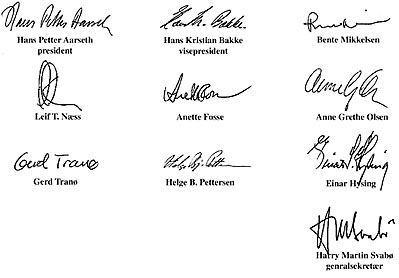 Hans Petter Aarseth
Hans Petter Aarseth
president
Hans Kr. Bakke
Hans Kristian Bakke
visepresident
Bente Mikkelsen
Leif T. Næss
Anette Fosse
Anne Grethe Olsen
Gerd Tranø
Gerd Tranø
Helge B. Pettersen
Einar Hysing
Harry Martin Svabø
genralsekretær